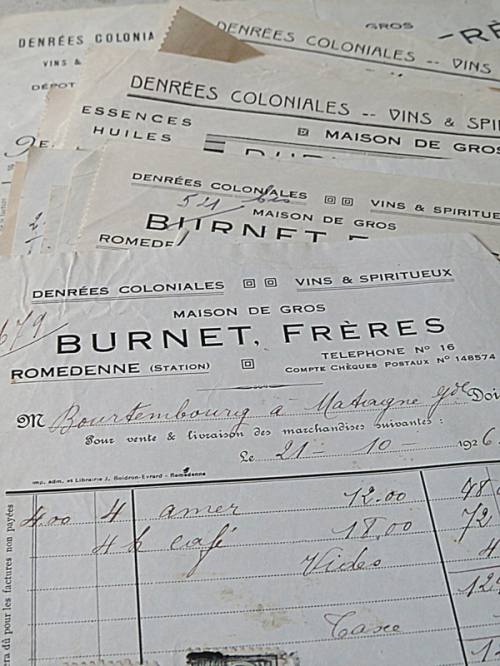 GROS
DENRÉES COLONIA
VINS &
DÉPOT
DENRÉES COLONIALES -- VINS
DENRÉES COLONIALES -- VINS & SPI
ESSENCES
HUILES
MAISON DE GROS
DENRÉES COLONIALES VINS & SPIRITUE
MAISON DE GROS
BURNET
ROMEDE
DENRÉES COLONIALES VINS & SPIRITUEUX
MAISON DE GROS
BURNET, FRÈRES
ROMEDENNE (STATION) TELEPHONE No 16
COMPTE CHÈQUES POSTAUX No 148574
M Bourtembourg à Matagne gde Doi
Pour vente & livraison des marchandises suivantes :
Le 21 - 10 - 1926
Imp. adm. et Librairie J. Boldron-Evrard - Romedenne
4.00 4 amer 12.00 48
4 k café 18,00 72
Vides 4
Taxe
era dû pour les factures non payées